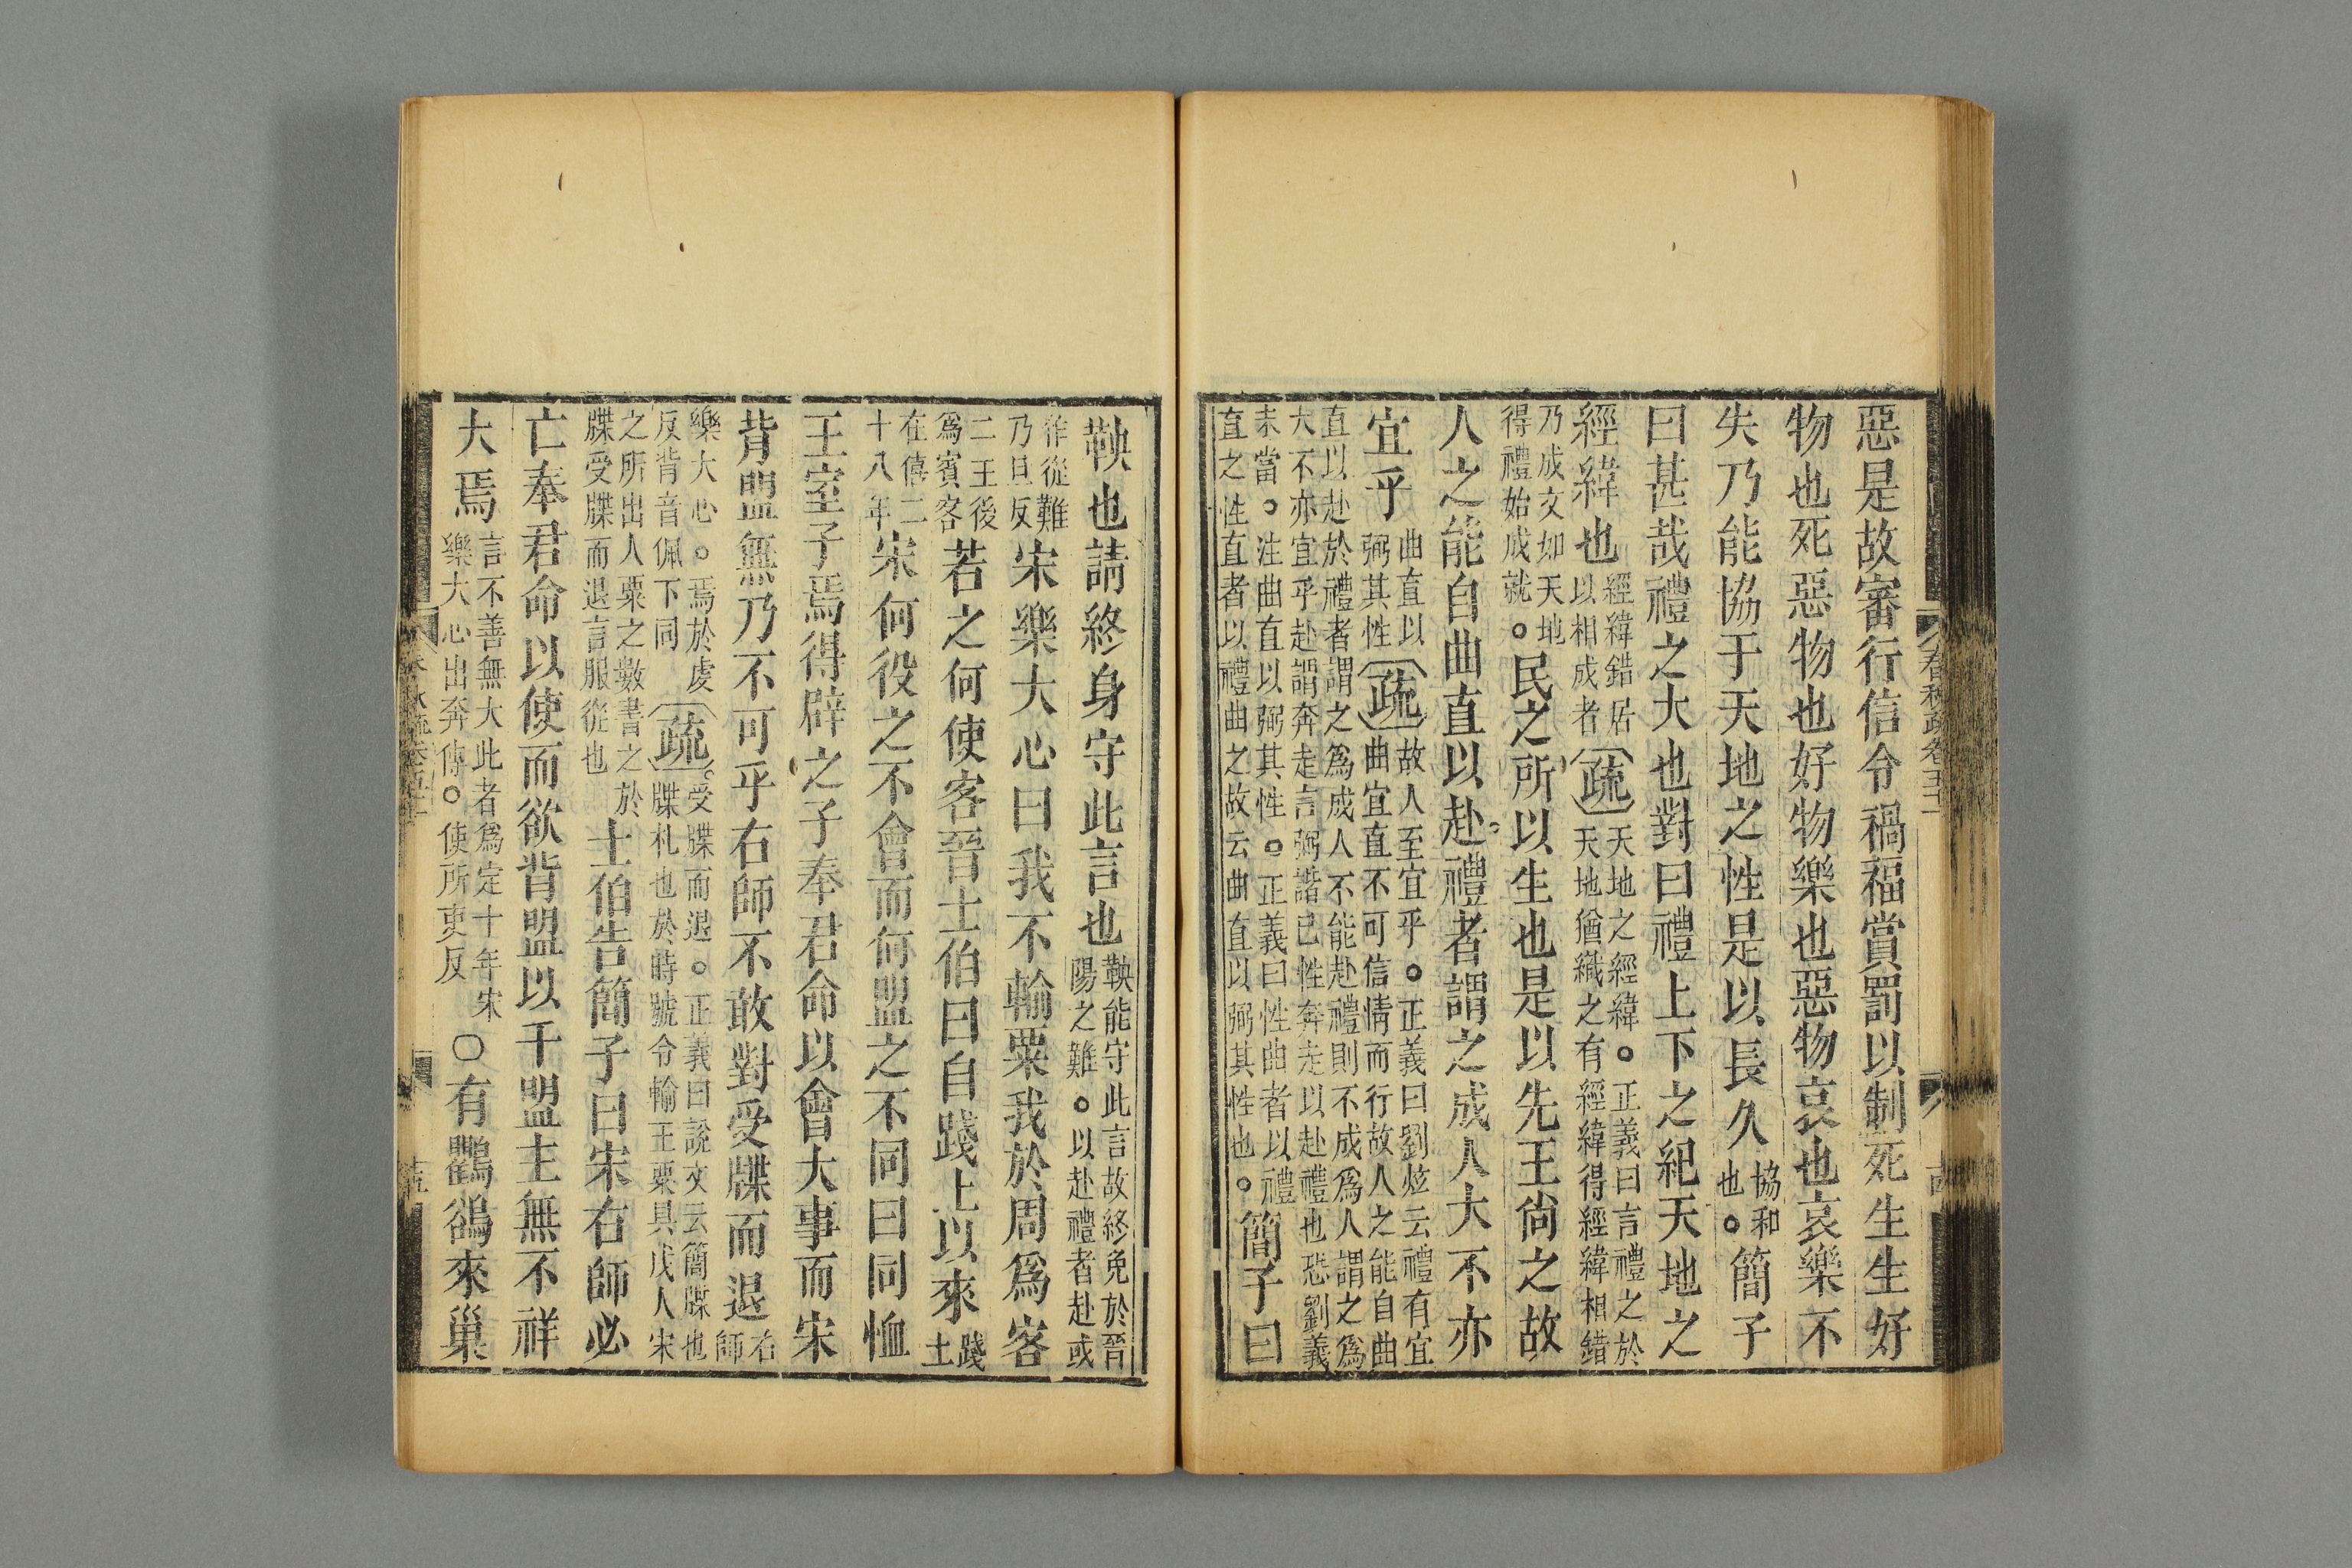 惡是故審行信令禍福賞罰以制死生生好
物也死惡物也好物樂也惡物哀也哀樂不
失乃能協于天地之性是以長久協和也。簡子
曰甚哉禮之大也對曰禮上下之紀天地之
經緯也經緯錯居以相成者疏天地之經緯。正義曰言禮之於天地猶織之有經緯得經緯相錯
乃成文如天地得禮始成就。民之所以生也是以先王尙之故
人之能自曲直以赴禮者謂之成人大不亦
宜乎曲直以弼其性疏故人至宜乎。正義曰劉炫云禮有宜曲宜直不可信情而行故人之能自曲
直以赴於禮者謂之爲成人不能赴禮則不成爲人謂之爲大不亦宜乎赴謂奔走言弼諧己性奔走以赴禮也恐劉義
未當。注曲直以弼其性。正義曰性曲者以禮直之性直者以禮曲之故云曲直以弼其性也。簡子曰
鞅也請終身守此言也鞅能守此言故終免於晉陽之難。以赴禮者赴或
作從難乃旦反宋樂大心曰我不輸粟我於周爲客
二王後爲賓客若之何使客晉士伯曰自踐土以來踐土
在僖二十八年宋何役之不會而何盟之不同曰同恤
王室子焉得辟之子奉君命以會大事而宋
背盟無乃不可乎右師不敢對受牒而退右師
樂大心。焉於虔反背音佩下同疏受牒而退。正義曰說文云簡牒也牒札也於時號令輸王粟具戍人宋
之所出人粟之數書之於牒受牒而退言服從也士伯告簡子曰宋右師必
亡奉君命以使而欲背盟以干盟主無不祥
大焉言不善無大此者爲定十年宋樂大心出奔傳。使所吏反〇有鸜鵒來巢
春秋疏卷五十一